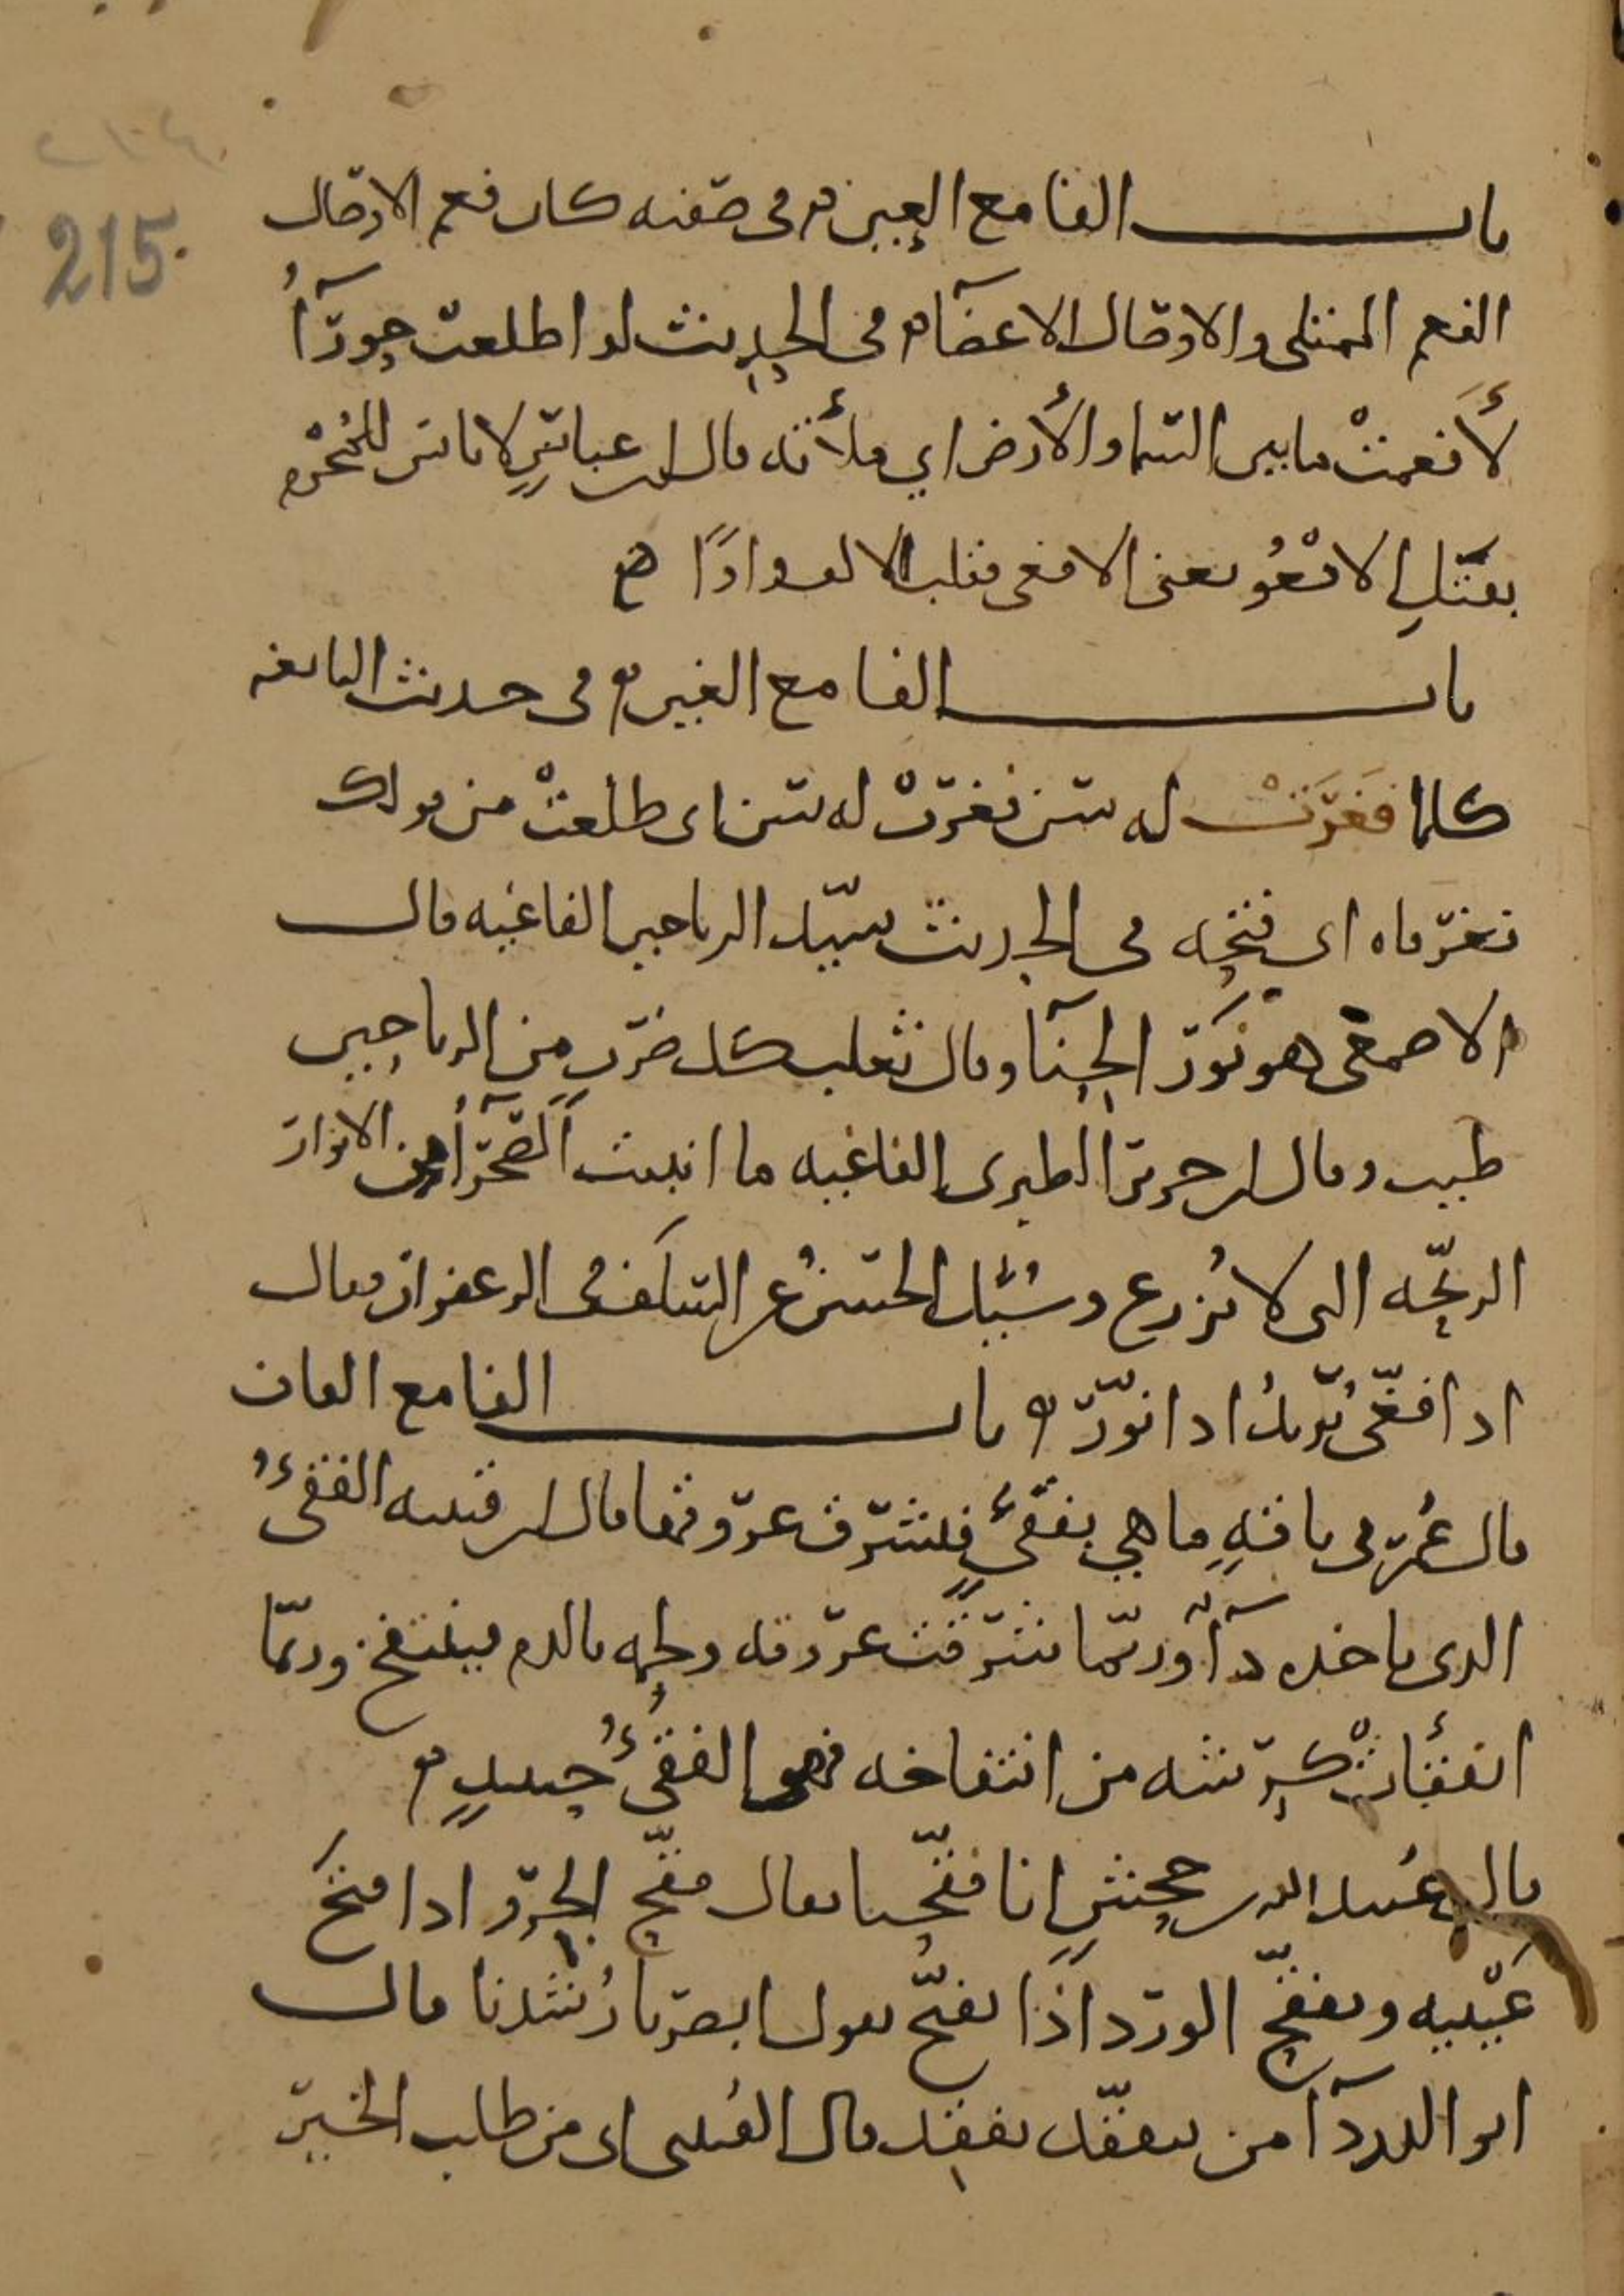 ٢١٤
215
باب الفا مع العين في صفته كان فعم الاوصال
الفعم الممتلى والاوصال الاعضآ في الحديث لو اطلعت حورآءُ
لأفعمتْ ما بين السما والأرض اي ملأته قال ابن عباسٍ لا باس للمُحْرِم
بقتلِ الافْعُو يعنى الافعى فقلب الالف واوًا
باب الفا مع الغين في حديث النابغه
كلما فَغَرَتْ له سن فغرتْ له سن اى طلعتْ من قولك
فغر فاه اى فتحه في الحديث سيّد الرياحين الفاغيه قال
الاصمعى هو نَوْر الحنآ وقال ثعلب كل ضربٍ من الرياحين
طيب وقال ابن جرير الطبرى الفاغيه ما انبتت الصحرآءُ من الانوار
الريحّه التى لا تُزرع وسُئِل الحسنُ عن السلَف فى الزعفران فقال
اذا فغّى يُريدُ اذا نوّر باب الفا مع القاف
قال عُمر فى ناقةٍ ما هي بفقئٍ فتشرق عروقها قال ابن قتيبه الفقئُ
الذى ياخذه دآءٌ وربّما شرقت عروقه ولحمه بالدم فينتفخ وربّما
انفقأت كرشه من انتفاخه فهو الفقئُ حينيذٍ
قال عبيد الله بن جحشٍ انا فقّحنا يقال فقّح الجرو اذا فتحَ
عَيْنيه وتفقّح الورد اذَا تفتّح يقول ابصرنا رُشْدنا قال
ابو الدردآ من يتفقّد يفقد قال القُتبى اى من طلب الخير